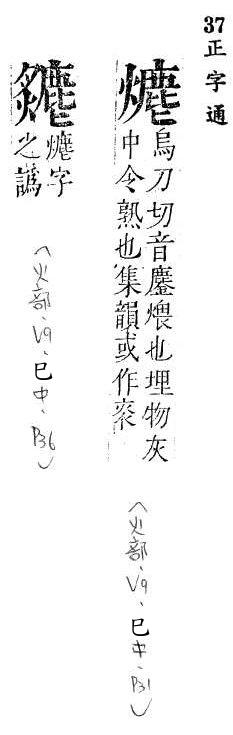 37
正字通
熝
烏刀切音鏖煨也埋物灰
中令熟也集韻或作
(火部、V9、巳中、P31)
熝字
之譌
(火部、V9、巳中、P36)